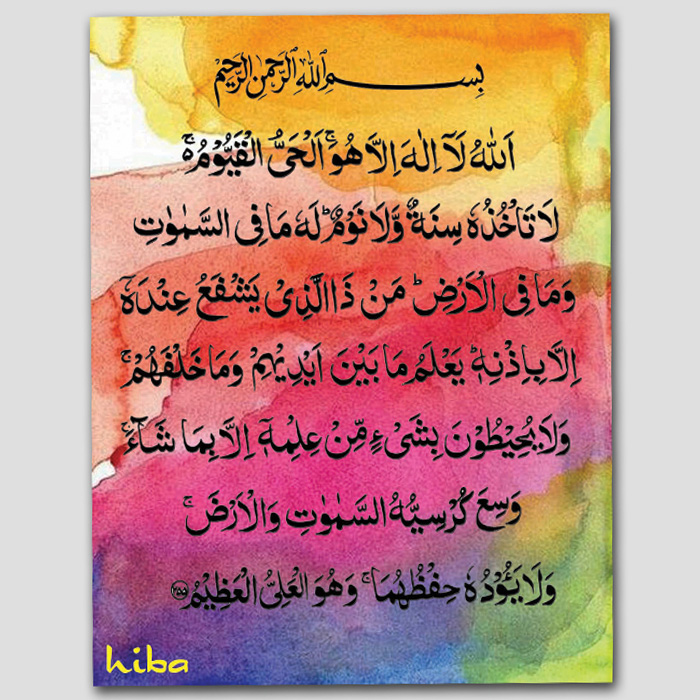 بِسۡمِ ٱللهِ ٱلرَّحۡمٰنِ ٱلرَّحِيۡمِ
اَللّٰهُ لَاۤ اِلٰهَ اِلَّا هُوَۚ اَلۡحَىُّ الۡقَيُّوۡمُ ۬ۚ
لَا تَاۡخُذُهٗ سِنَةٌ وَّلَا نَوۡمٌ‌ؕ لَهٗ مَا فِى السَّمٰوٰتِ
وَمَا فِى الۡاَرۡضِ‌ؕ مَنۡ ذَا الَّذِىۡ يَشۡفَعُ عِنۡدَهٗۤ
اِلَّا بِاِذۡنِهٖ‌ؕ يَعۡلَمُ مَا بَيۡنَ اَيۡدِيۡهِمۡ وَمَا خَلۡفَهُمۡ‌ۚ
وَلَا يُحِيۡطُوۡنَ بِشَىۡءٍ مِّنۡ عِلۡمِهٖۤ اِلَّا بِمَا شَآءَ‌ۚ
وَسِعَ كُرۡسِيُّهُ السَّمٰوٰتِ وَالۡاَرۡضَ‌ۚ
وَلَا يَـــُٔوۡدُهٗ حِفۡظُهُمَا‌ۚ وَهُوَ الۡعَلِىُّ الۡعَظِيۡمُ ۲۵۵
hiba